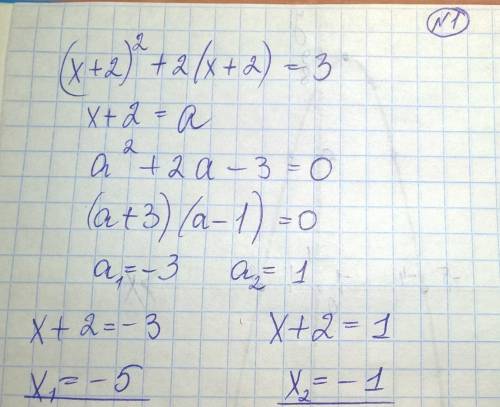 №1
(x+2)² + 2(x+2) = 3
x+2 = a
a² + 2a - 3 = 0
(a+3)(a-1) = 0
a₁ = -3 a₂ = 1
x+2 = -3 x+2 = 1
x₁ = -5 x₂ = -1